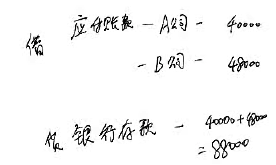 借 应付账款 — A公司 — 40000
— B公司 — 48000
贷 银行存款 — 40000+48000
=88000